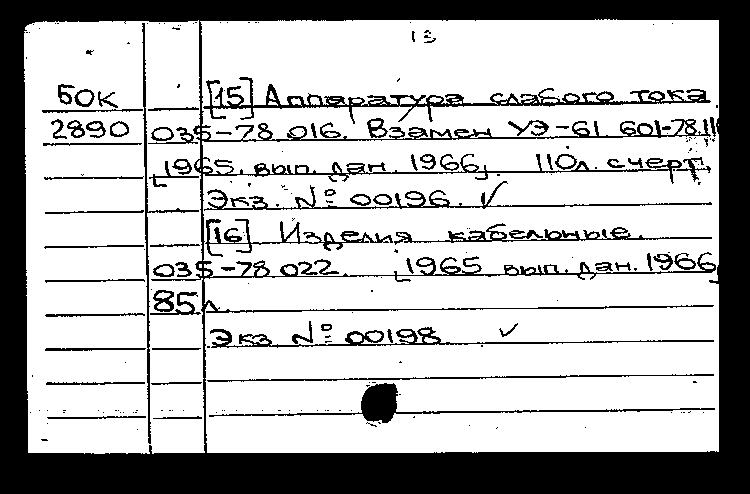 13
БОК [15] Аппаратура слабого тока
2890 035-78 016. Взамен УЭ-61 601-78.11
[1965. вып. дан. 1966]. 110л. счерт.
Экз. № 00196. ✓
[16] Изделия кабельные.
035-78 022. [1965 вып. дан. 1966]
85л.
Экз № 00198 ✓